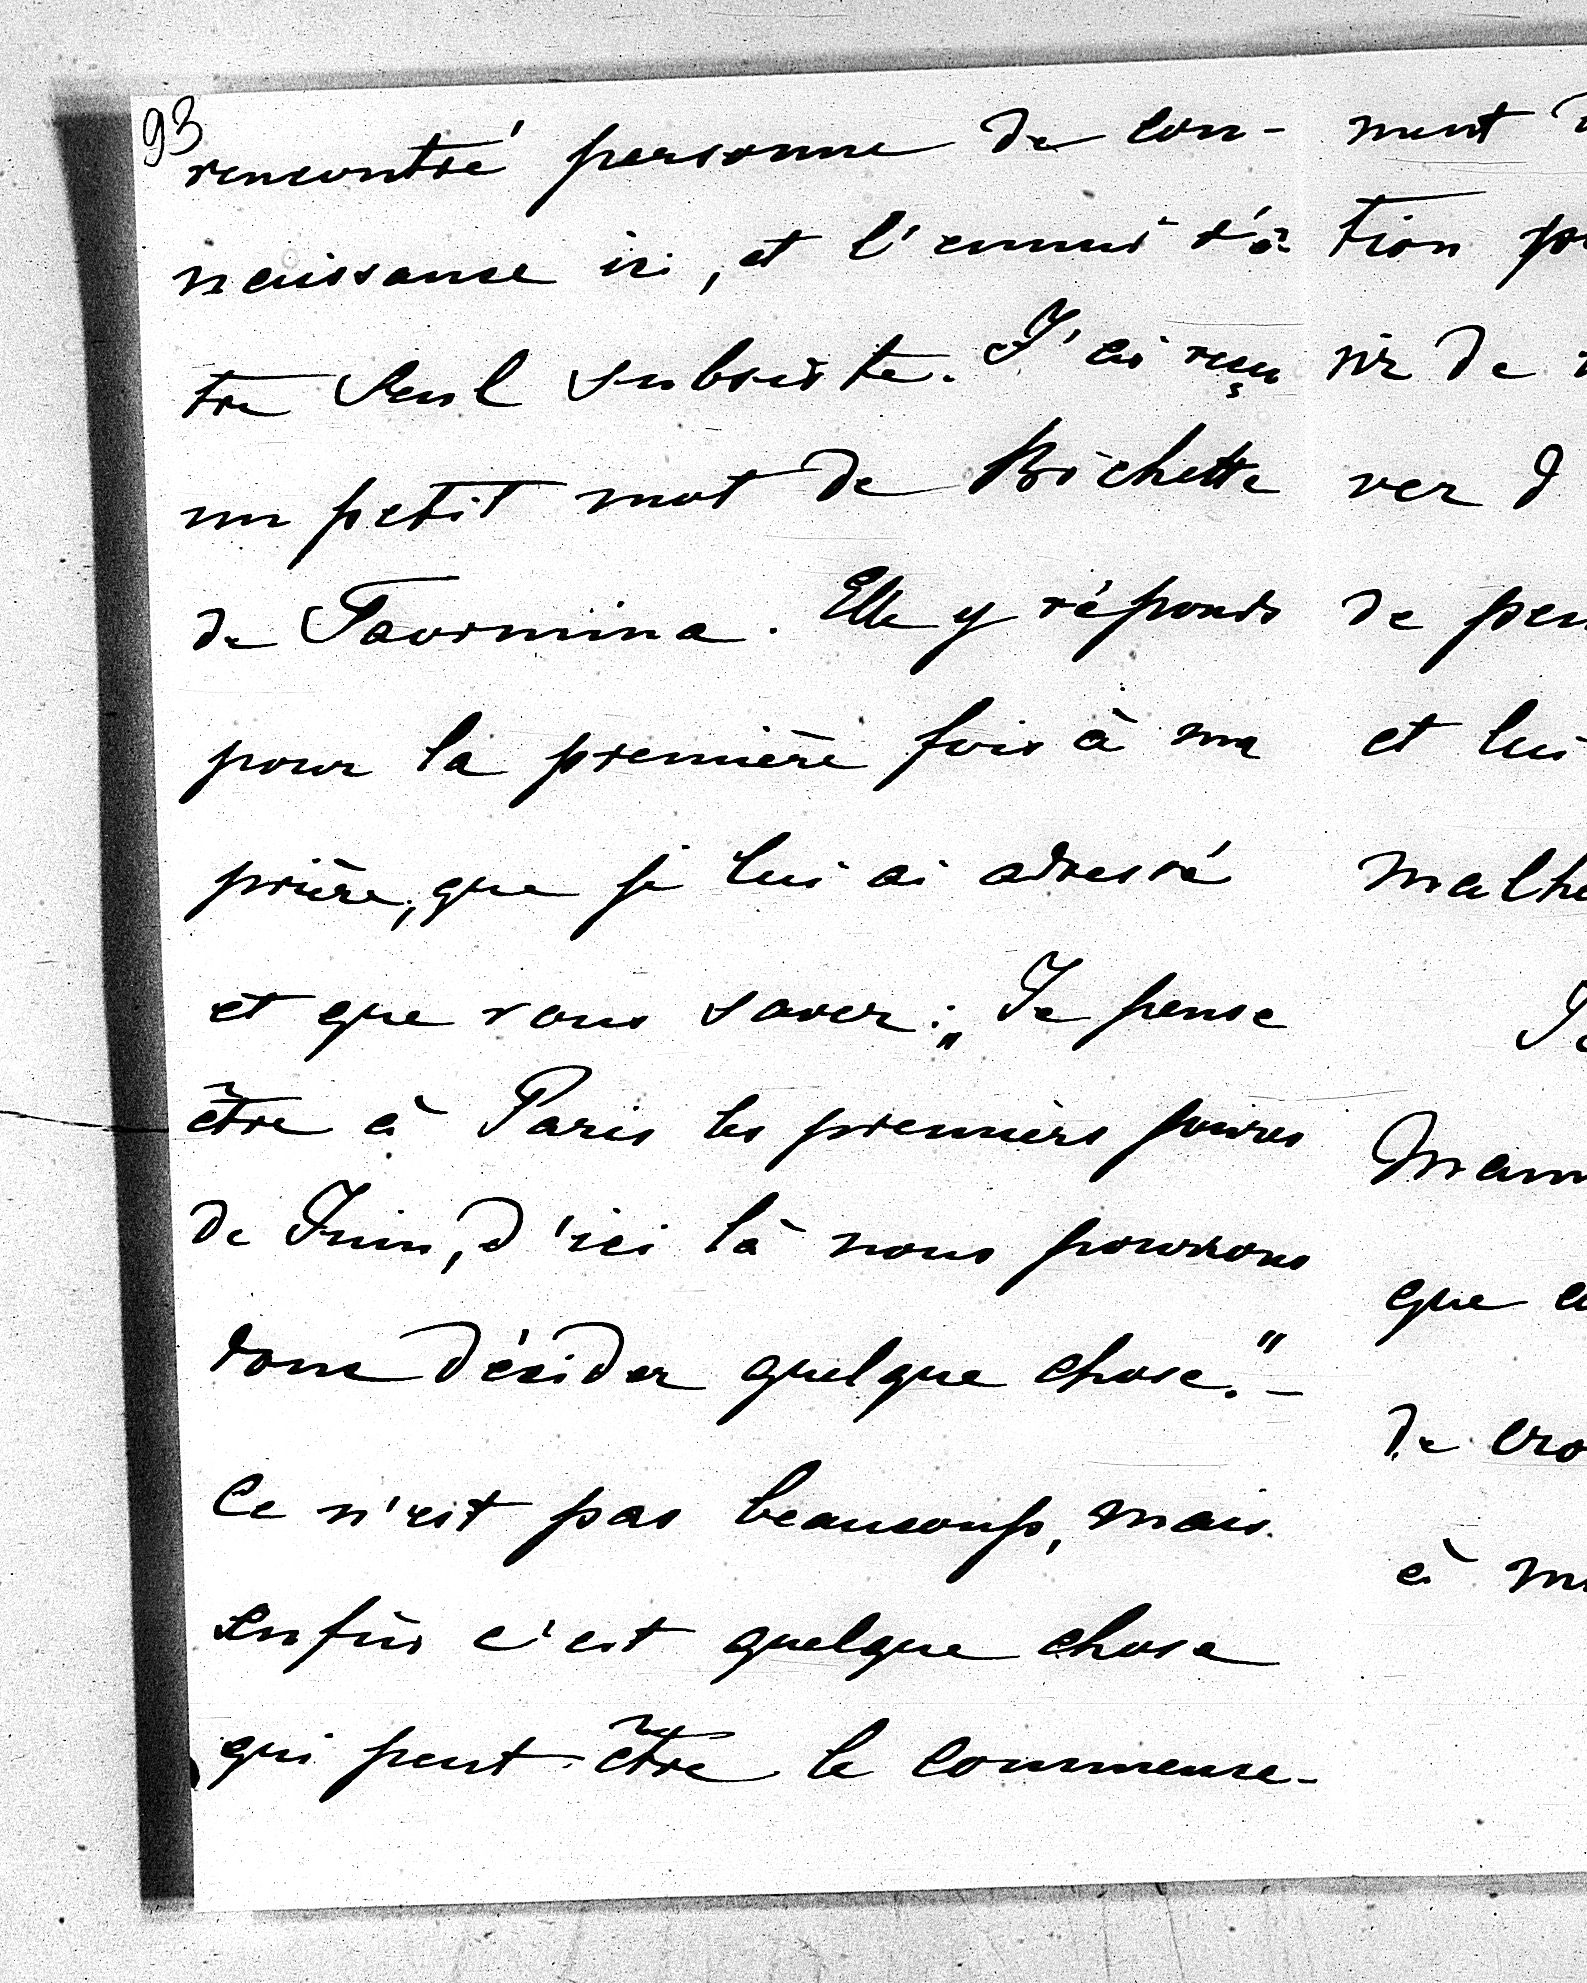 93
rencontré personne de con-
naissance ici, et l'ennui d'ê-
tre seul subsiste. J'ai reçu
un petit mot de Bichette
de Taormina. Elle y réponds
pour la première fois à ma
prière, que je lui ai adressé
et que vous savez: „Je pense
être à Paris les premiers jours
de Juin, d'ici là nous pourrons
donc décider quelque chose."-
Ce n'est pas beaucoup, mais
enfin c'est quelque chose
qui peut-être le commence-
ment
tion
sir de
ver
de
et lui
que
de
à